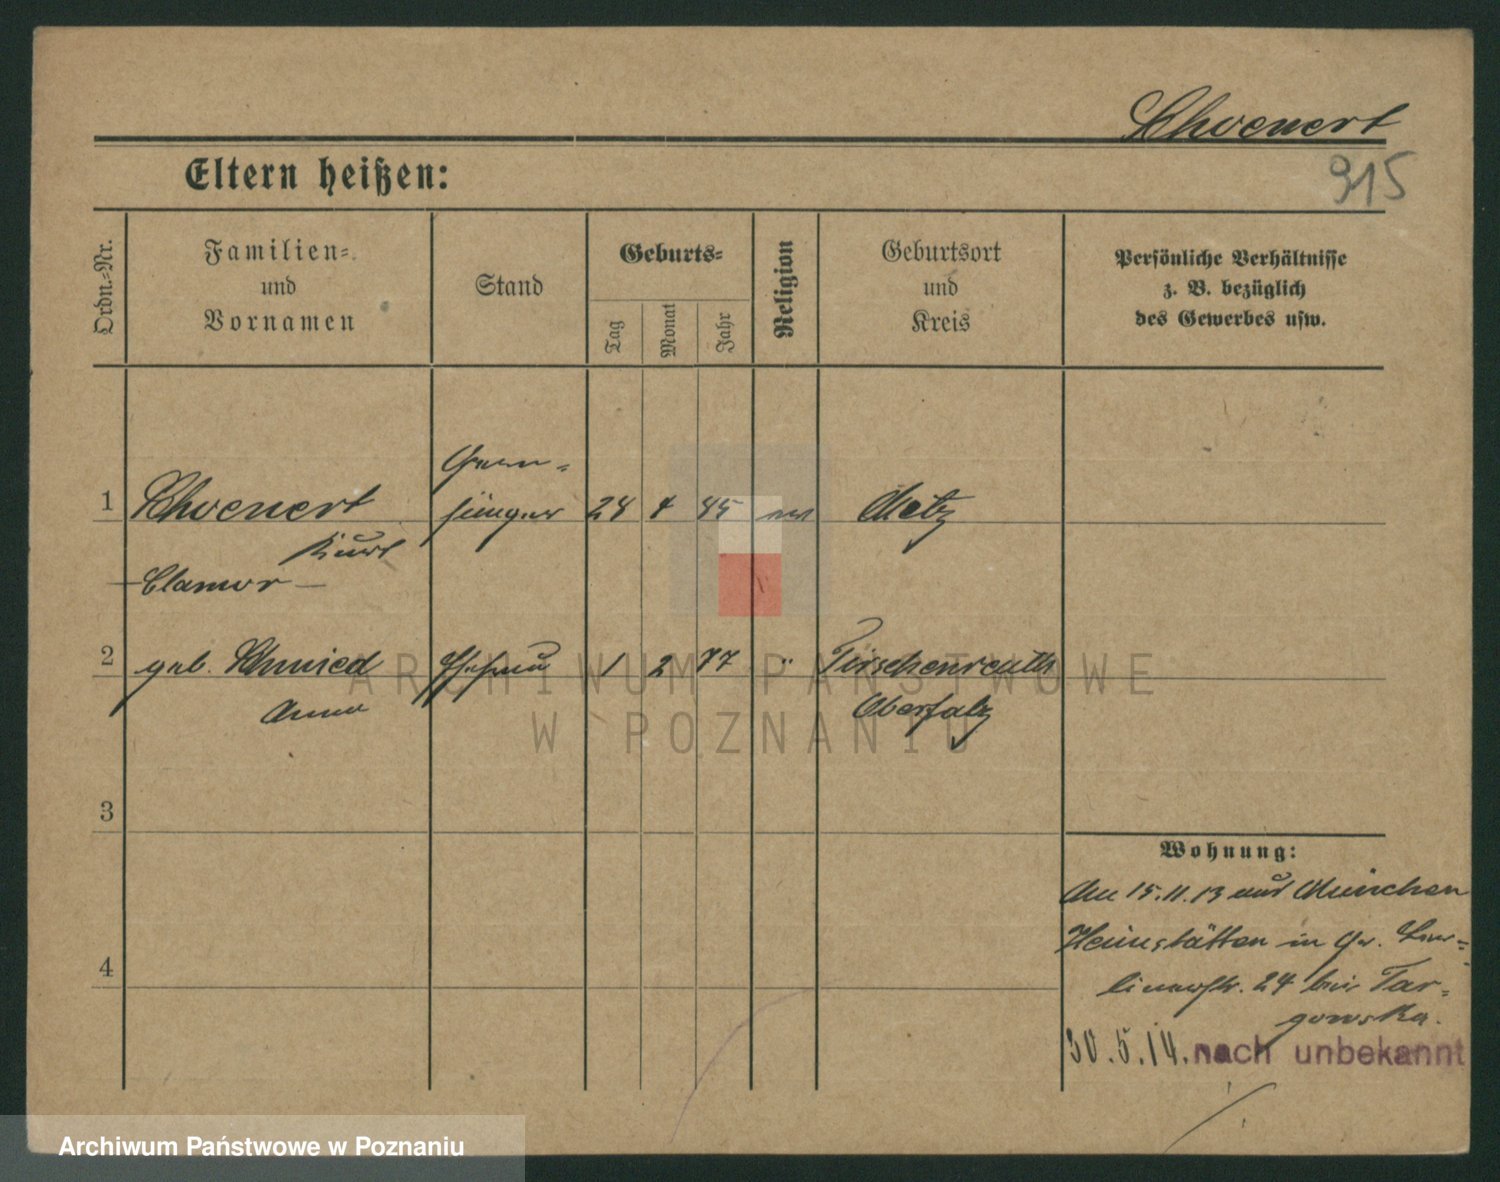 Schoenert
915
Eltern heißen:
Ordn.-Nr.
Familien-
und
Vornamen
Stand
Geburts-
Tag
Monat
Jahr
Religion
Geburtsort
und
Kreis
Persönliche Verhältnisse
z. B. bezüglich
des Gewerbes usw.
1 Schoenert 24 4 Metz
Kurt
Clamor
2 geb. Schmied Ehefrau 1 2 77 " Tirschenreuth
Anna Oberfalz
3
4
Wohnung:
Am 15.11.13 aus München
Heimstätten in Gr. Ber-
linerstr. 24 bei Tar-
gowska.
30.5.14. nach unbekannt
ARCHIWUM PAŃSTWOWE
W POZNANIU
Archiwum Państwowe w Poznaniu